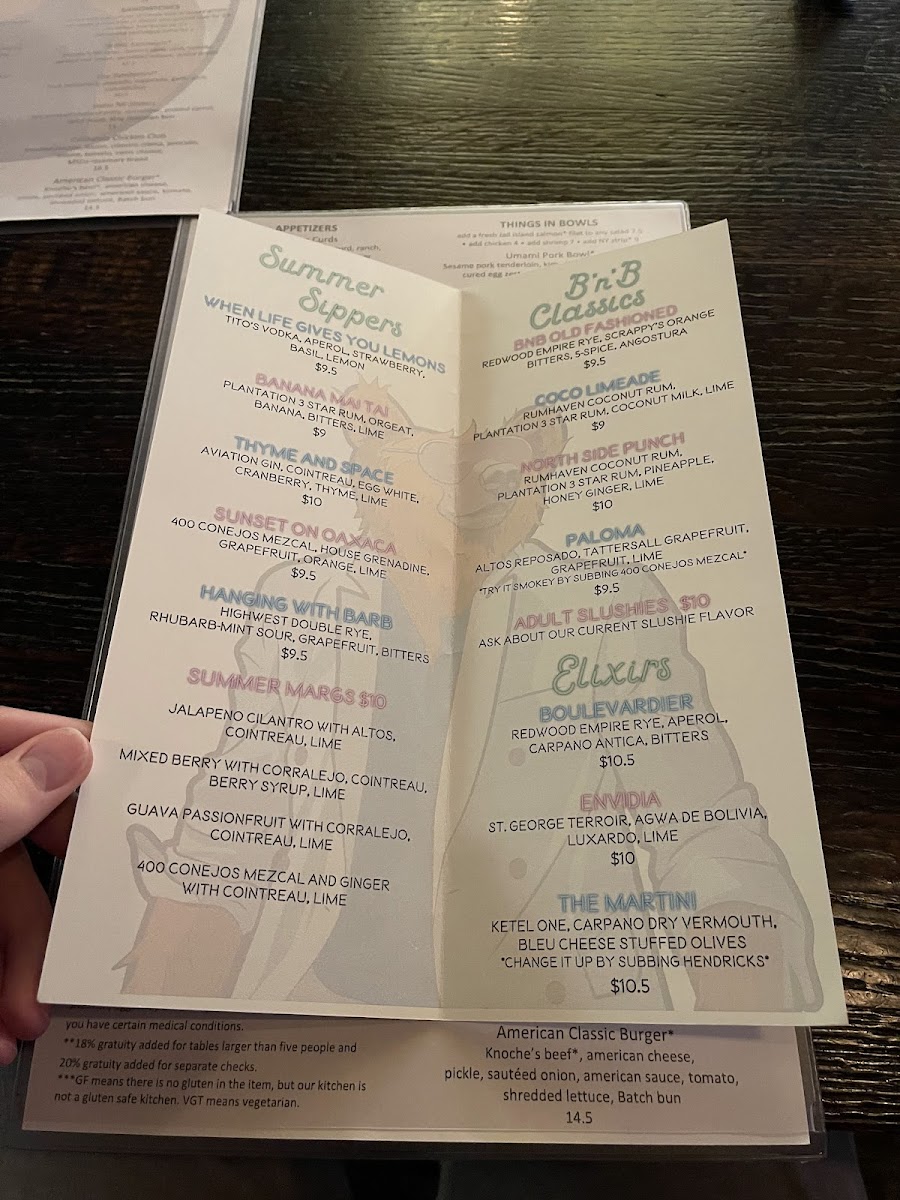 American Classic Burger*
Knoche's beef*, american cheese,
14.5
APPETIZERS
Curds
ranch,
THINGS IN BOWLS
add a fresh fillet to any salad 7.5
• add chicken 4 • add shrimp 7 • add NY strip* 9
Umami Pork Bowl*
Sesame pork tenderloin,
cured egg
Summer
Sippers
WHEN LIFE GIVES YOU LEMONS
TITO'S VODKA, APEROL, STRAWBERRY,
BASIL, LEMON
$9.5
BANANA MAI TAI
PLANTATION 3 STAR RUM, ORGEAT,
BANANA, BITTERS, LIME
$9
THYME AND SPACE
AVIATION GIN, COINTREAU, EGG WHITE,
CRANBERRY, THYME, LIME
$10
SUNSET ON OAXACA
400 CONEJOS MEZCAL, HOUSE GRENADINE,
GRAPEFRUIT, ORANGE, LIME
$9.5
HANGING WITH BARB
HIGHWEST DOUBLE RYE,
RHUBARB-MINT SOUR, GRAPEFRUIT, BITTERS
$9.5
SUMMER MARGS $10
JALAPENO CILANTRO WITH ALTOS,
COINTREAU, LIME
MIXED BERRY WITH CORRALEJO, COINTREAU,
BERRY SYRUP, LIME
GUAVA PASSIONFRUIT WITH CORRALEJO,
COINTREAU, LIME
400 CONEJOS MEZCAL AND GINGER
WITH COINTREAU, LIME
B'n'B
Classics
BNB OLD FASHIONED
REDWOOD EMPIRE RYE, SCRAPPY'S ORANGE
BITTERS, 5-SPICE, ANGOSTURA
$9.5
COCO LIMEADE
RUMHAVEN COCONUT RUM,
PLANTATION 3 STAR RUM, COCONUT MILK, LIME
$9
NORTH SIDE PUNCH
RUMHAVEN COCONUT RUM,
PLANTATION 3 STAR RUM, PINEAPPLE,
HONEY GINGER, LIME
$10
PALOMA
ALTOS REPOSADO, TATTERSALL GRAPEFRUIT,
GRAPEFRUIT, LIME
*TRY IT SMOKEY BY SUBBING 400 CONEJOS MEZCAL*
$9.5
ADULT SLUSHIES $10
ASK ABOUT OUR CURRENT SLUSHIE FLAVOR
Elixirs
BOULEVARDIER
REDWOOD EMPIRE RYE, APEROL,
CARPANO ANTICA, BITTERS
$10.5
ENVIDIA
ST. GEORGE TERROIR, AGWA DE BOLIVIA,
LUXARDO, LIME
$10
THE MARTINI
KETEL ONE, CARPANO DRY VERMOUTH,
BLEU CHEESE STUFFED OLIVES
*CHANGE IT UP BY SUBBING HENDRICKS*
$10.5
you have certain medical conditions.
**18% gratuity added for tables larger than five people and
20% gratuity added for separate checks.
***GF means there is no gluten in the item, but our kitchen is
not a gluten safe kitchen. VGT means vegetarian.
American Classic Burger*
Knoche's beef*, american cheese,
pickle, sautéed onion, american sauce, tomato,
shredded lettuce, Batch bun
14.5